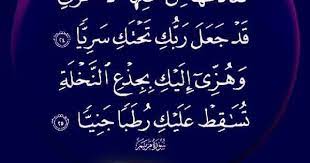 قَدْ جَعَلَ رَبُّكِ تَحْتَكِ سَرِيًّا ٢٤
وَهُزِّي إِلَيْكِ بِجِذْعِ النَّخْلَةِ
تُسَاقِطْ عَلَيْكِ رُطَبًا جَنِيًّا ٢٥
سورة مريم